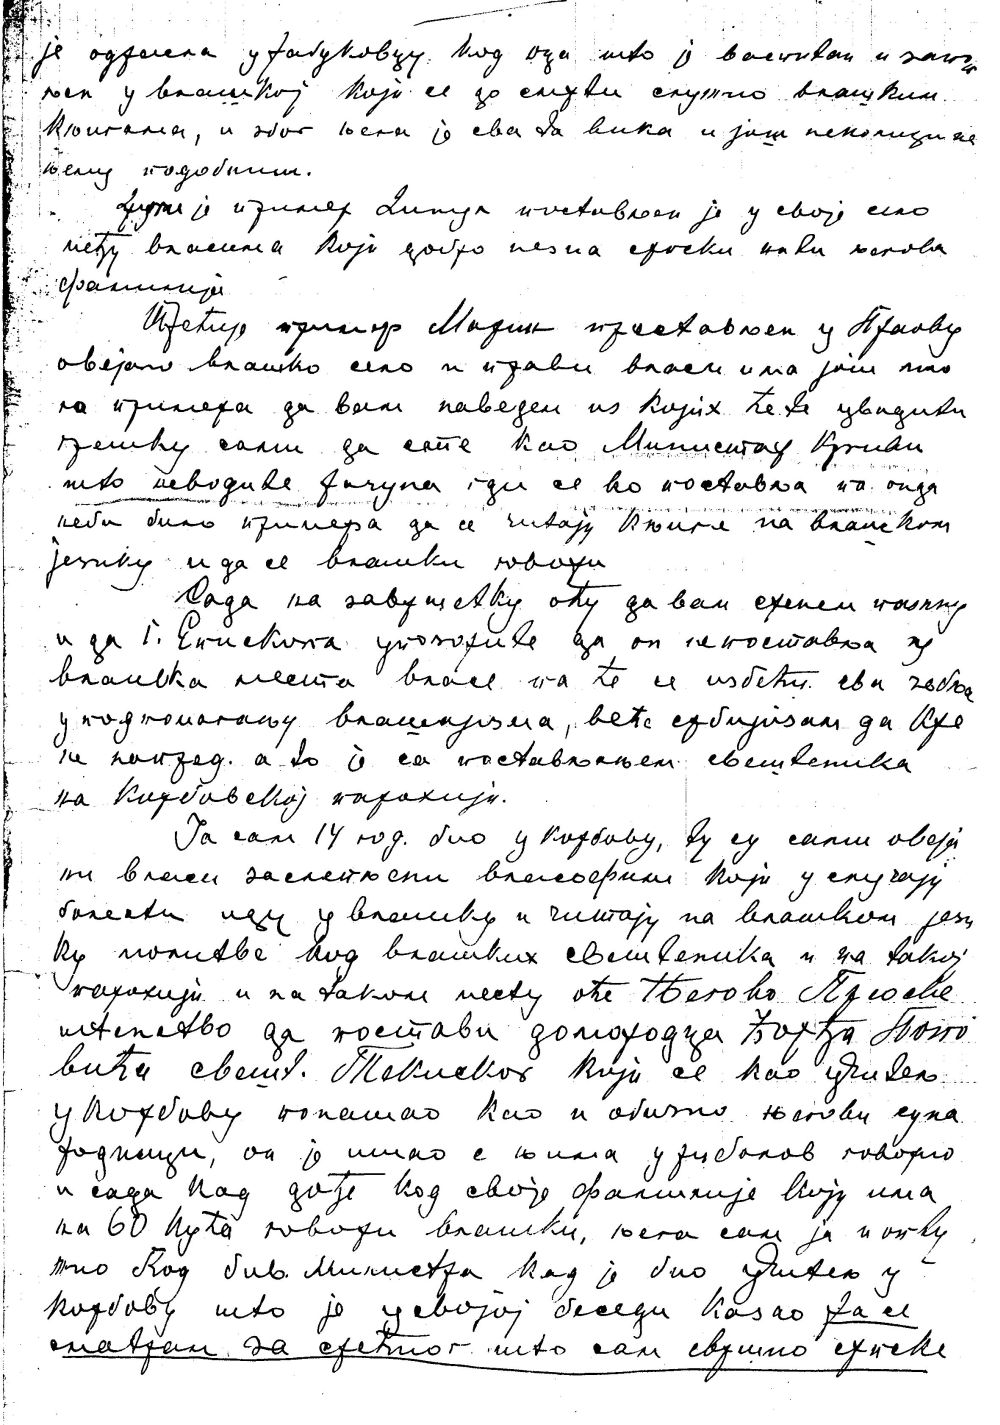 је одрасла у Јабуковцу код оца што је васпитан и
у влашкој који се до смрти служио влашким
књигама, и због њега је сва та вика и још неколицине
њему подобним.
Други је пример постављен је у своје село
међу власима који добро незна српски нити његова
фамилија
Трећи пример Марин преставлен у Праову
овејано влашко село и прави власи има још мно
го примера да вам наведем из којих ћете увидити
грешку сами да сте као Министар Криви
што неводите рачуна гди се ко поставља па онда
неби било примера да се читају књиге на влашком
језику и да се влашки говори
Сада на завршетку оћу да вам скренем пажњу
и да Г. Епископа упозорите да он непоставља у
влашка места власе па ће се избећи сви
у подпомагању влашкизма, већ србијизам да кре
не напред. а то је са постављањем свештеника
на Корбовској парохији.
Ја сам 14 год. био у Корбову, ту су сами oвеја
ни власи заслепљени власофили који у случају
болести иду у влашку и читају на влашком јези
ку молитве код влашких свештеника и на такој
парохији и на таком месту оће Његово Преосве
штенство да постави домородца Ђорђа Попо
вића свешт. који се као учитељ
у Корбову понашао као и обично његови суна
родници, он је ишао с њима у риболов говорио
и сада кад дође код своје фамилије коју има
на 60 кућа говори влашки, њега сам ја и опту
жио Код бив. Министра кад је био учитељ у
Корбову што је у својој беседи казао Ја се
сматрам за срећног што сам свршио српске